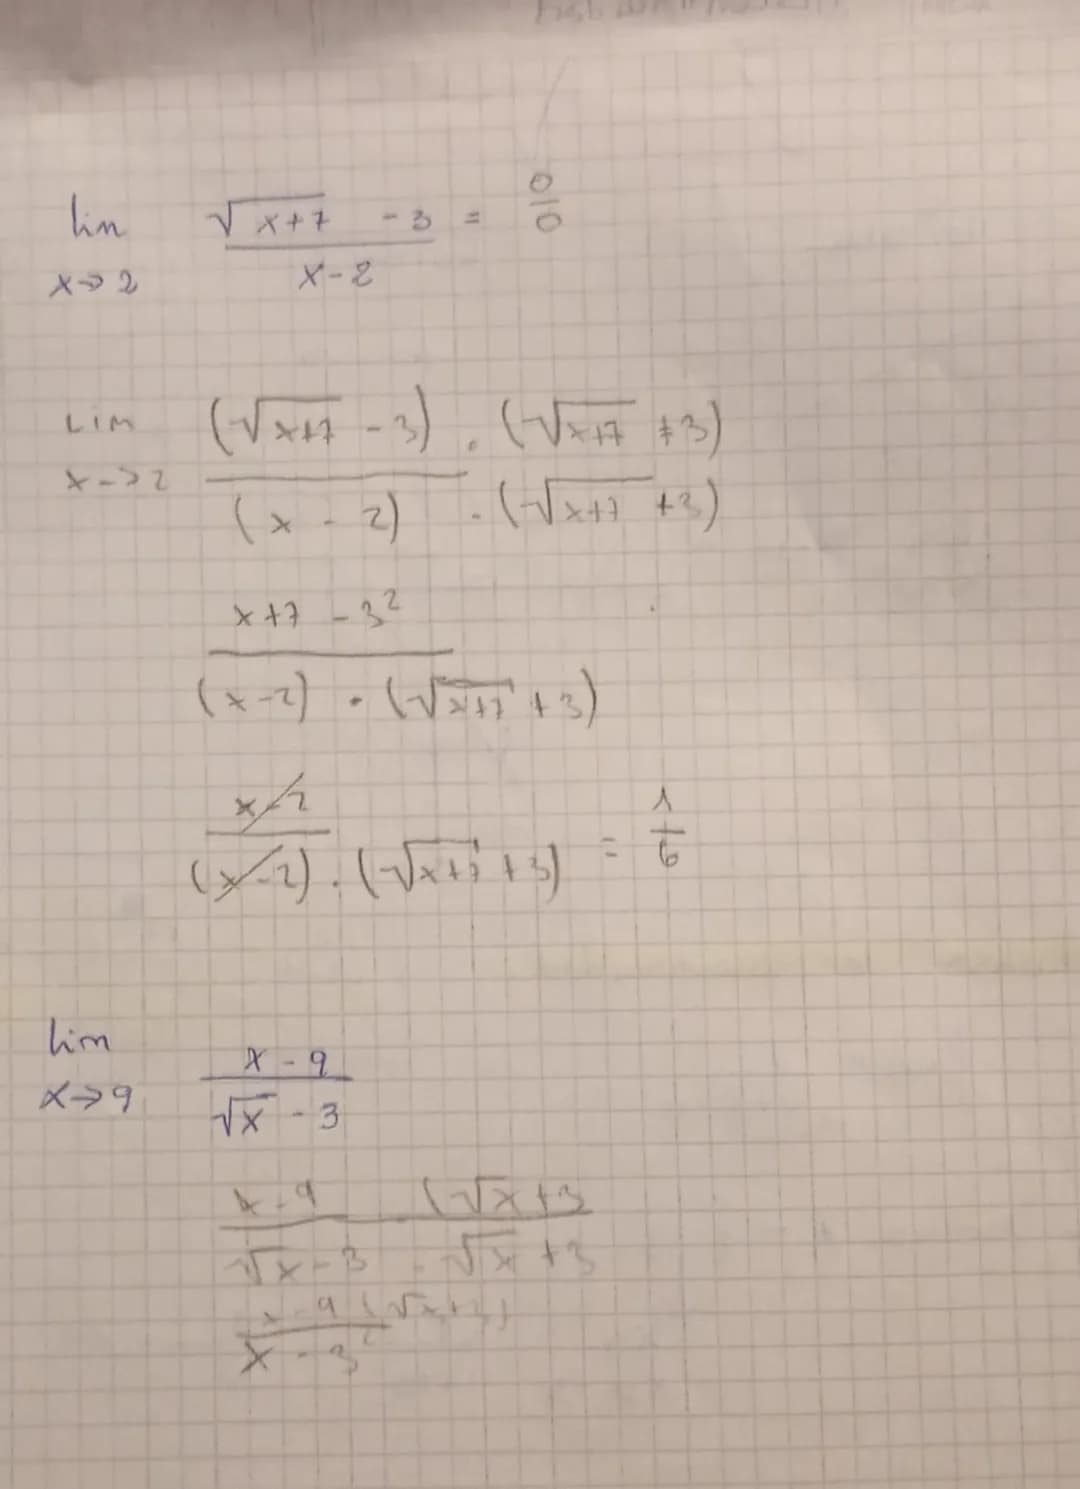 lim x→2 (√(x+7) - 3)/(x-2) = 0/0
Lim x->2 ((√(x+7) - 3) . (√(x+7) + 3))/((x - 2) . (√(x+7) + 3))
(x+7 - 3²)/((x-2) · (√(x+7) + 3))
(x-2)/((x-2) . (√(x+7) + 3)) = 1/6
lim x→9 (x - 9)/(√x - 3)
(x-9 . (√x + 3)/(√x - 3 . √x + 3)
(x-9 (√x+3))/(x - 3²)